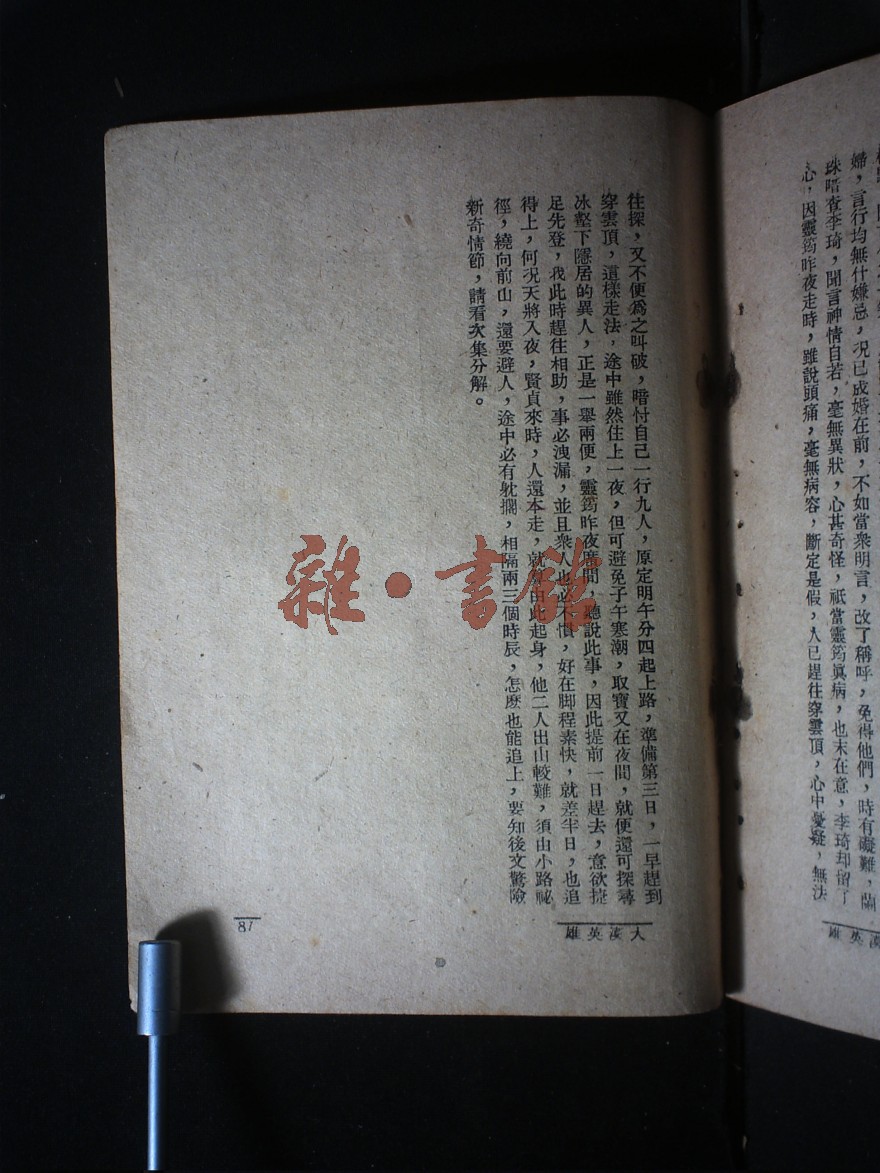 婦，言行均無什嫌忌，况已成婚在前，不如當衆明言，改了稱呼，免得他們，時有礙難，蘭
珠暗查李琦，聞言神情自若，毫無異狀，心甚奇怪，祇當靈筠眞病，也未在意，李琦却留了
心，因靈筠昨夜走時，雖說頭痛，毫無病容，斷定是假，人已趕往穿雲頂，心中憂疑，無法
往探，又不便爲之叫破，暗忖自己一行九人，原定明午分四起上路，準備第三日，一早趕到
穿雲頂，這樣走法，途中雖然住上一夜，但可避免子午寒潮，取寶又在夜間，就便還可探尋
冰壑下隱居的異人，正是一舉兩便，靈筠昨夜席間，聽說此事，因此提前一日趕去，意欲捷
足先登，我此時趕往相助，事必洩漏，並且衆人也必不慣，好在脚程素快，就差半日，也追
得上，何况天將入夜，賢貞來時，人還本走，就算由此起身，他二人出山較難，須由小路祕
徑，繞向前山，還要避人，途中必有躭擱，相隔兩三個時辰，怎麽也能追上，要知後文驚險
新奇情節，請看次集分解。
大漠英雄
87
雜·書館